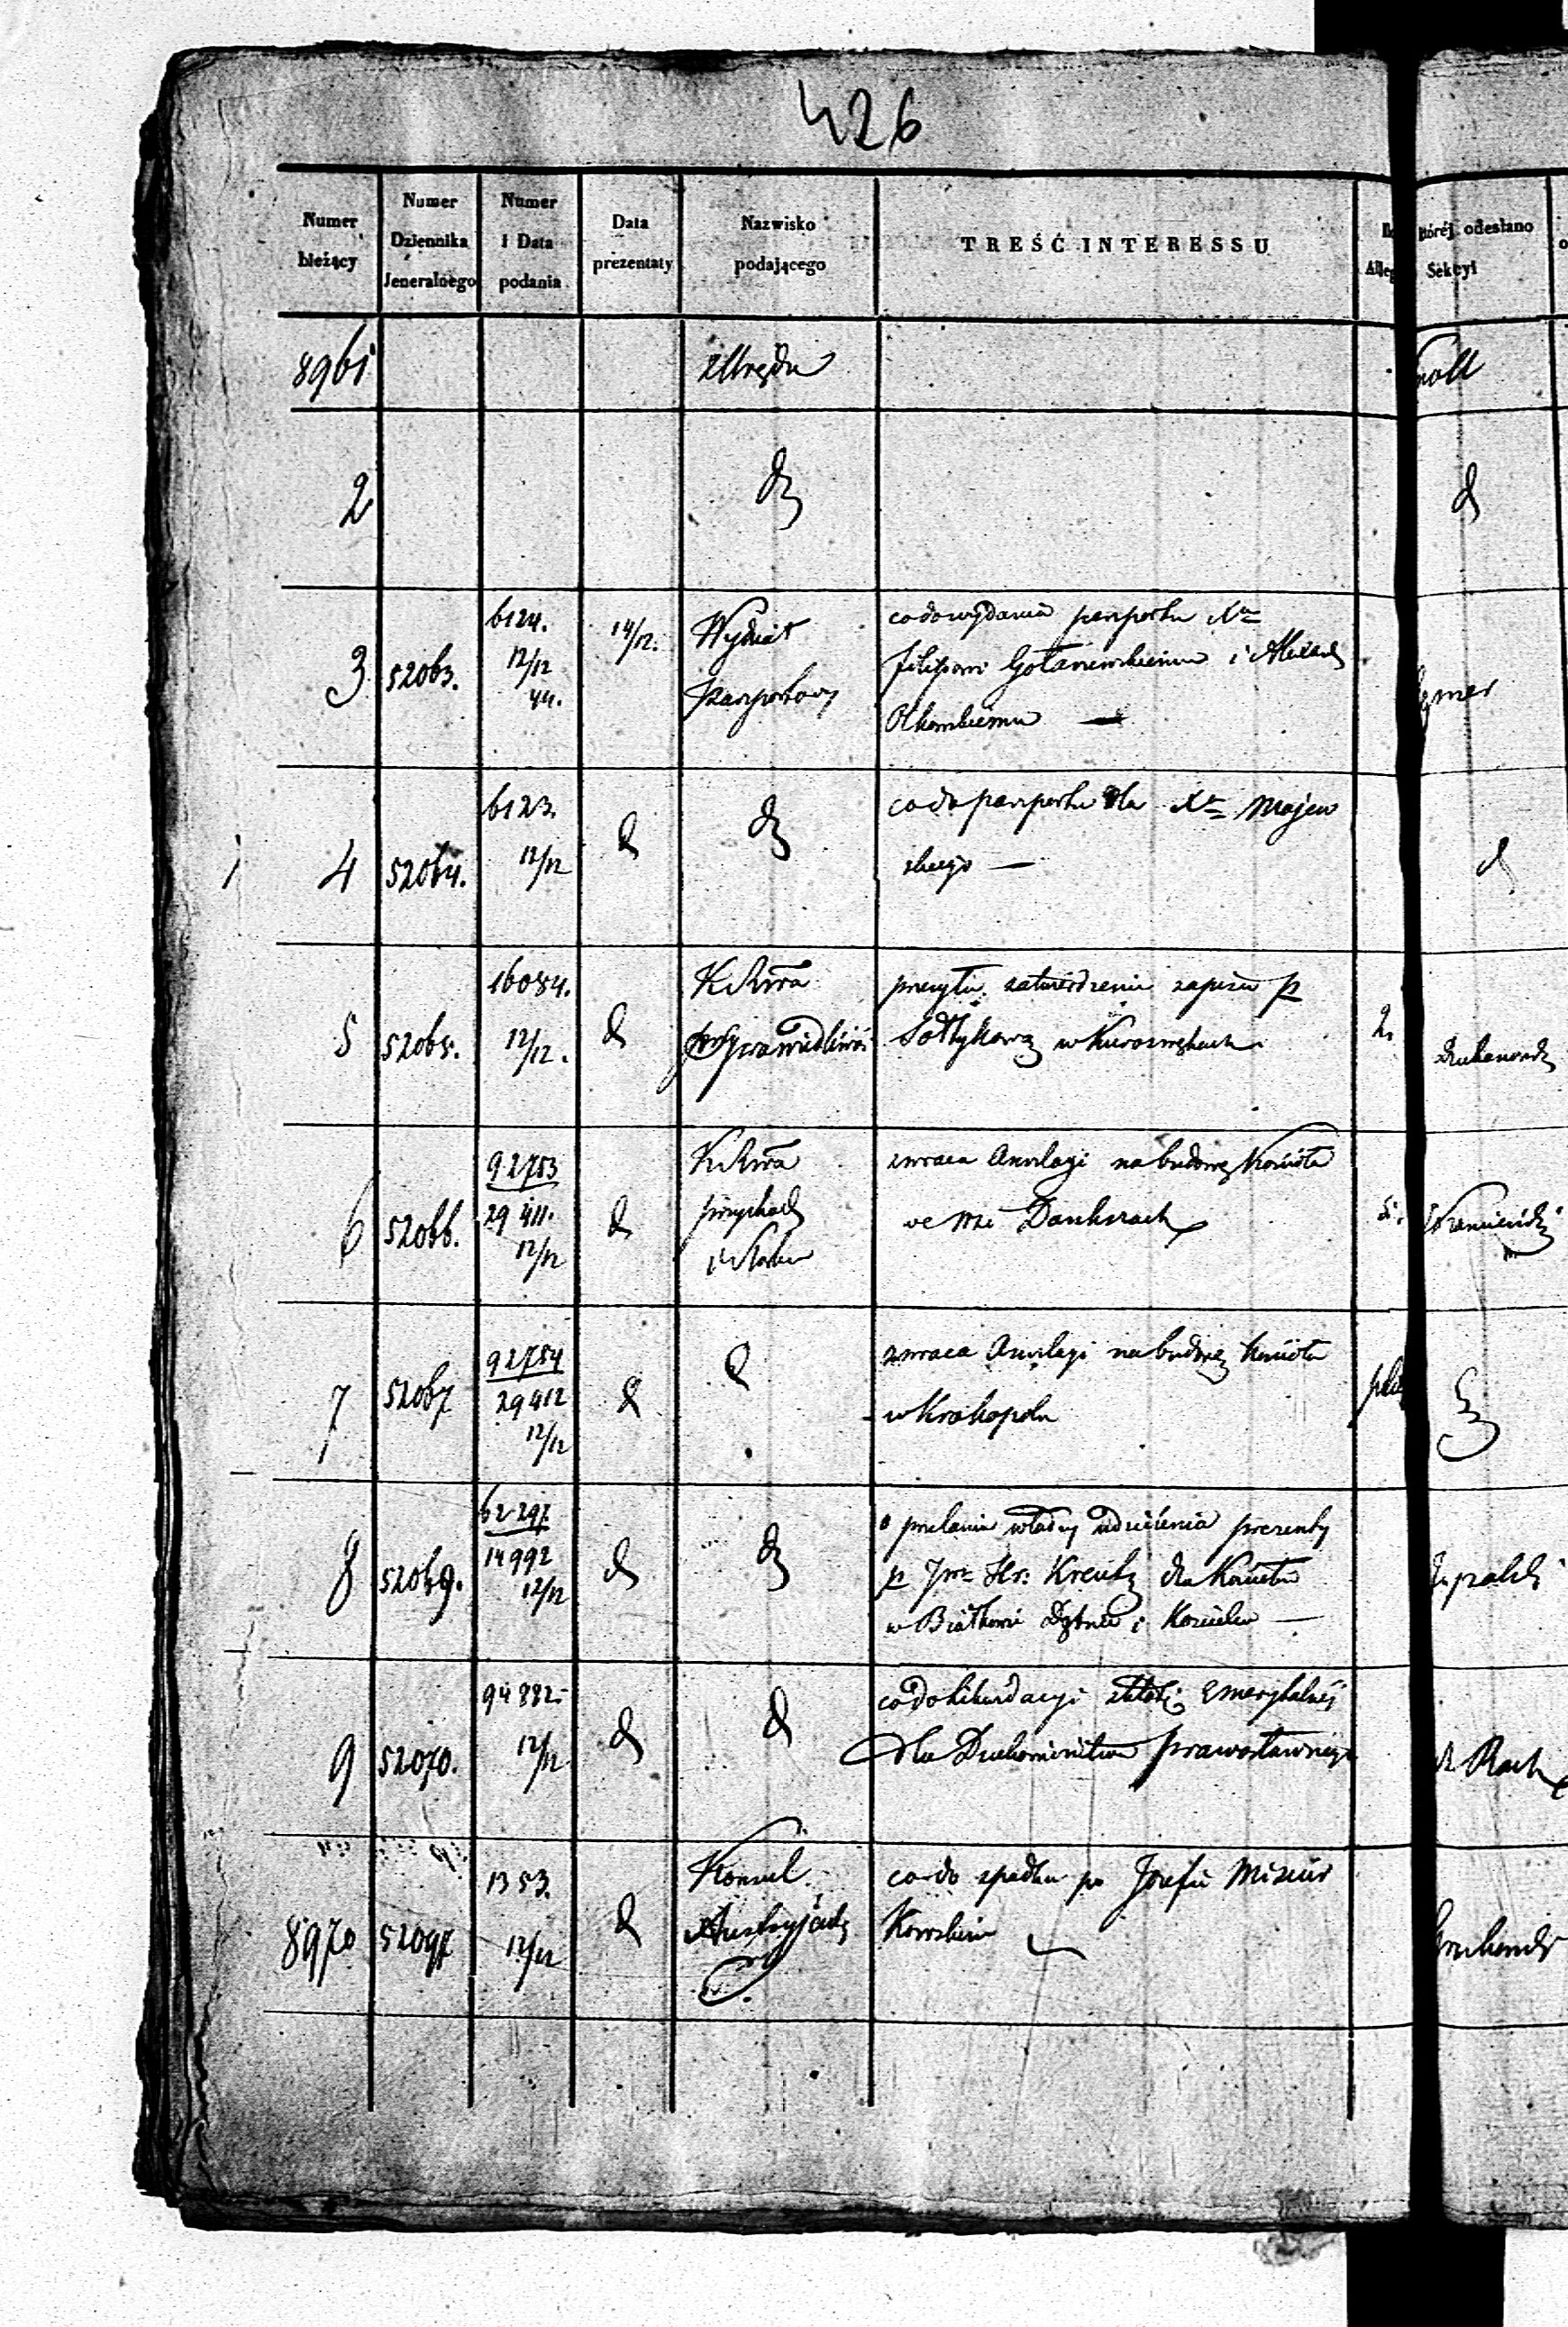 426
Numer bieżący
Numer Dziennika Jeneralnego
Numer i Data podania
Data prezentaty
Nazwisko podającego
TREŚĆ INTERESSU
której odesłano Sekcyi
8961 z Urzędu
2 d
3 52063. 6124. 12/12 44. 14/12. Wydział Paszportowy
co do wydania paszportu Xu
Filipowi Gołaszewskiemu i
4 52064. 6123. 12/12 d d
co do paszportu dla Xa Majew
skiego —
5 52065. 16084. 12/12. d K R Sprawiedliwoś: 2.
zatwierdzenie zapisu p
Sołtykową w Kurozwękach
6 52066. 92753 29411. 12/12 d K R Przychod i Skarbu
zwraca Anszlagi na budowę Kościoła
we wsi Dankowach
7 52067 92754 29412 12/12 d d
zwraca Anszlagi na budowę Kościoła
w Krakopolu
8 52069. 62297 14992 12/12 d d
o przelanie władzy udzielenia prezenty
p Hr: Kreutz dla Kościołów
w Białkowie Dębnie i Kościelcu —
9 52070. 94882 12/12 d d
co do likwidacyi składki Emerytalnéj
dla Duchowieństwa prawosławnego
8970 52097 1353. 12/12 d Konsul Austryjacki
co do spadku po Józefie Misiur